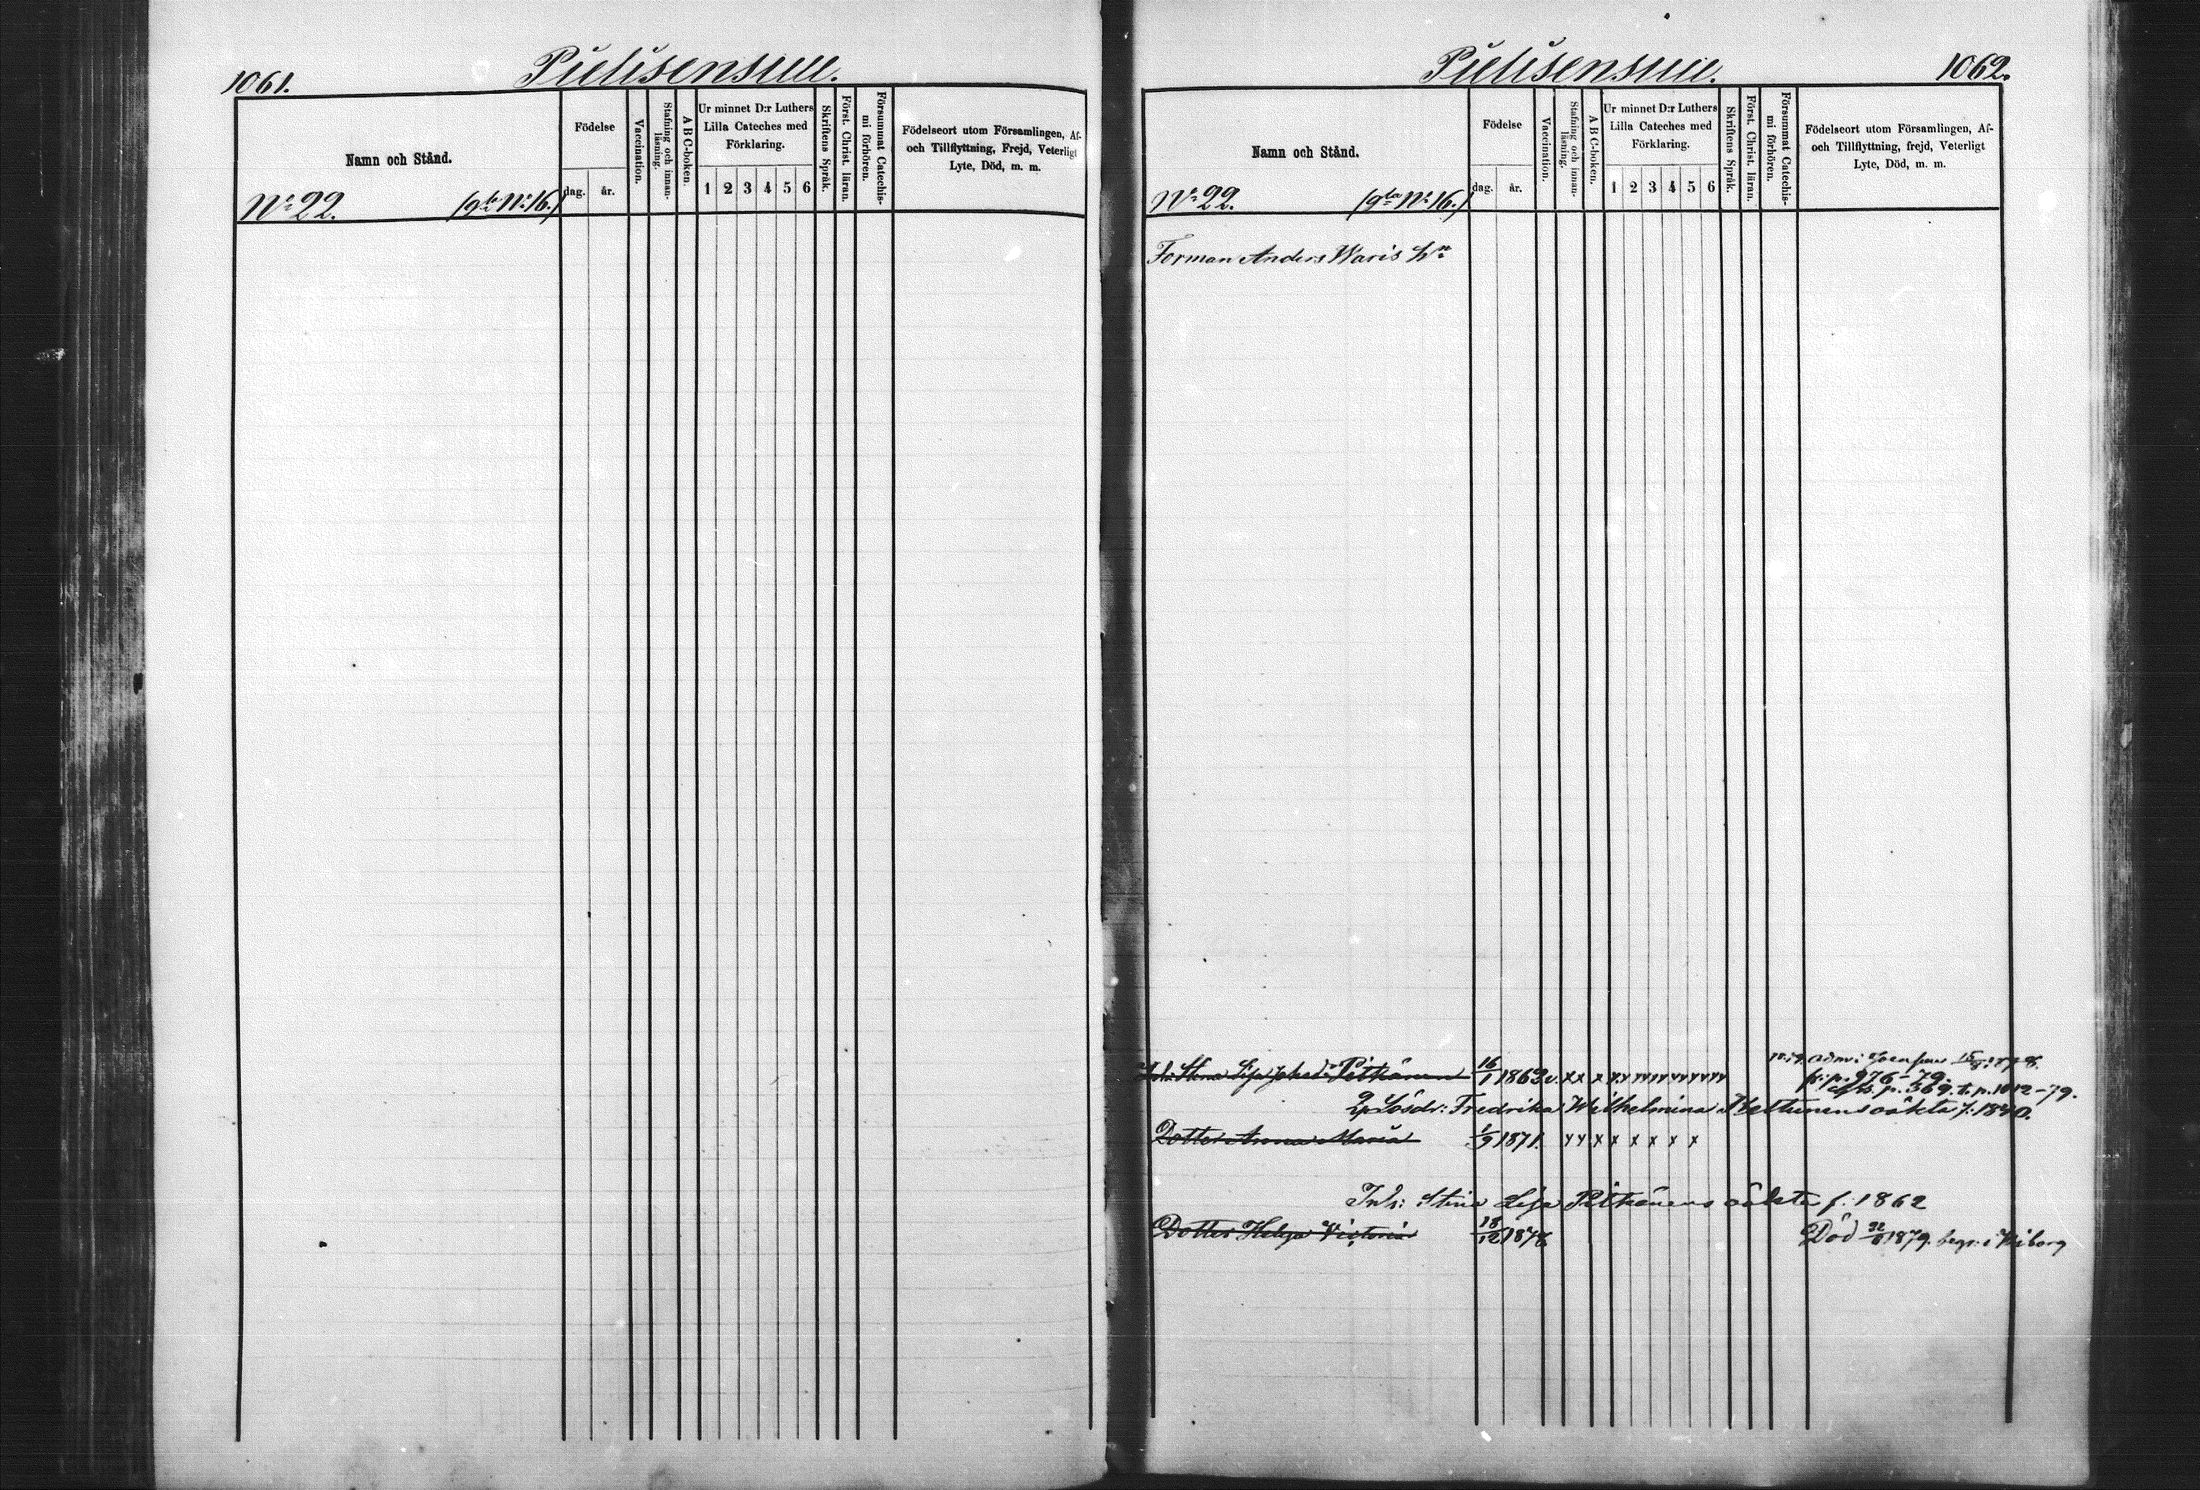 1061.
Pielisensuu.
Namn och Stånd.
Födelse
dag.
år.
Vaccination.
Stafning och innan-
läsning.
A B C-boken.
Ur minnet D:r Luthers
Lilla Cateches med
Förklaring.
1 2 3 4 5 6
Skriftens Språk.
Först. Christ. läran.
Försummat Catechis-
mi förhören.
Födelseort utom Församlingen, Af-
och Tillflyttning, Frejd, Veterligt
Lyte, Död, m. m.
No 22. (gla No 16.)
Pielisensuu.
1062.
Namn och Stånd.
Födelse
dag.
år.
Vaccination.
Stafning och innan-
läsning.
A B C-boken.
Ur minnet D:r Luthers
Lilla Cateches med
Förklaring.
1 2 3 4 5 6
Skriftens Språk.
Först. Christ. läran.
Försummat Catechis-
mi förhören.
Födelseort utom Församlingen, Af-
och Tillflyttning, frejd, Veterligt
Lyte, Död, m. m.
No 22. (gla No 16.)
Forman Anders Waris
Stina Lisa Pitkänen 16/1 1862 v. x x x
p. 976-79.
p. 569. t. p. 1012-79.
Lösdr: Fredrika Wilhelmina oäkta f. 1840.
Dotter Anna Maria 1/9 1871. x x x x x x x x
Inh: Stina Lisa Pitkänens oäkta f. 1862
Dotter Helga Victoria 18/12 1878 Död 1879. begr. i Wiborg